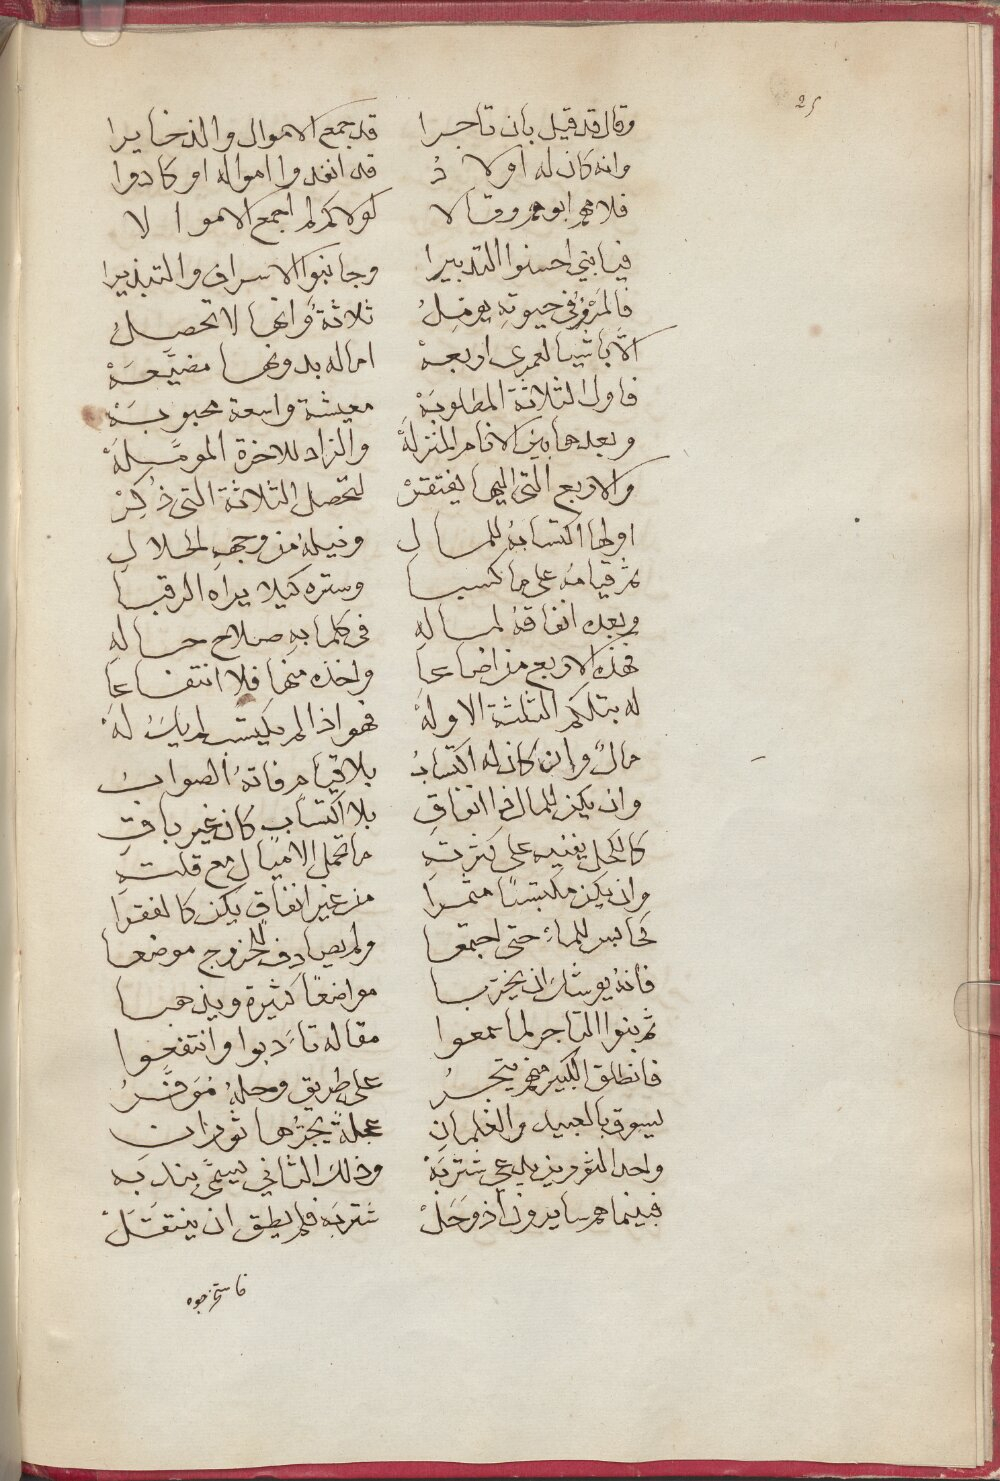 25
وقال قد قيل بان تاجرا قد جمع الاموال والذخايرا
وانه كان له اولا دُ قد انفدوا امواله او كادوا
فلامهم ابوهم وقالا لولاكم لم اجمع الاموا لا
فيا بني احسنوا التدبيرا وجانبوا الاسراف والتبذيرا
فالمَرْؤُ في حيوتهِ يومّلُ ثلاثةً وانها لا تحصلُ
الّا باشيا لعمرى اربعهْ اماله بدونها مضيَّعَهْ
فاول الثلاثة المطلوبَهْ معيشة واسعة محبوبَهْ
وبعدها بين الانام المنزلَهْ والزاد للاخرة المومَّلَهْ
والاربع التى اليها يفتقرْ لتحصل الثلاثة التى ذُكِرْ
اولها اكتسابُهُ للمالِ ونيلهُ من وجههِ الحلالِ
ثم قيامهُ على ما كسبا وستره كيلا يراه الرقبا
وبعده انفاقهُ لمالهِ فى كلما بهِ صلاح حالهِ
فهذه الاربع من اضاعا واخذه منها فلا انتفاعا
له بتلكم الثلثة الاولهْ فهو اذا لم يكتسب لم يكُ لهْ
مالٌ وان كان له اكتسابُ بلا قيامٍ فاتهُ الصوابُ
وان يكن للمال ذا انفاقِ بلا اكتسابٍ كان غير باقِ
كالكحل يفنيه على كثرتهِ ما تحمل الاميال مع قلتهِ
وان يكن مكتسبًا مثمرا من غير انفاقٍ يكن كالفقرا
كحابس للماءِ حتى اجتمعا ولم يصادف للخروج موضعا
فانهُ يوشك ان يخربا مواضعًا كثيرة ويذهبا
ثم بنوا التاجر لما سمعوا مقاله تأَدبوا وانتفعوا
فانطلق الكبير منهم يتجرُ على طريق وحلهُ مُوَفَّرُ
يسوق بالعبيد والغلمانِ عجلةً يجرُّها ثورانِ
واحد الثورين يدعى شتربَهْ وذلك الثاني يسمَّى بندبَه
فبينما هم سايرون اذ وَحَلْ شتربَه فلم يطق ان ينتقَلْ
فاستخرجوه